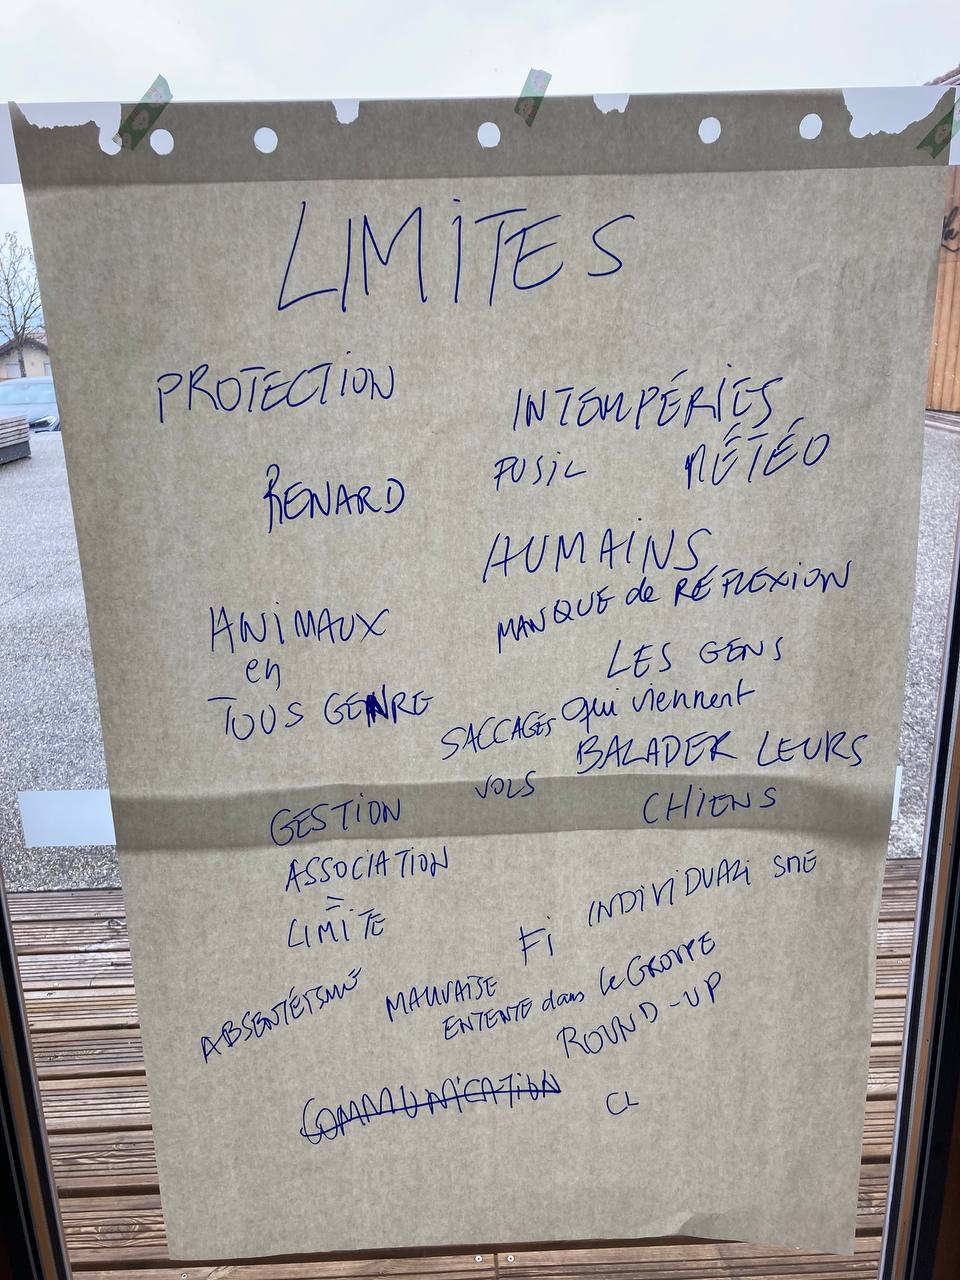 LIMITES
PROTECTION
INTEMPÉRIES
FUSIL
MÉTÉO
RENARD
HUMAINS
MANQUE de RÉFLEXION
ANIMAUX
en
TOUS GENRE
LES GENS
qui viennent
BALADER LEURS
CHIENS
SACCAGES
VOLS
GESTION
ASSOCIATION
=
LIMITE
INDIVIDUALISME
Fi
ABSENTÉISME
MAUVAISE
ENTENTE dans le GROUPE
ROUND-UP
COMMUNICATION
CL